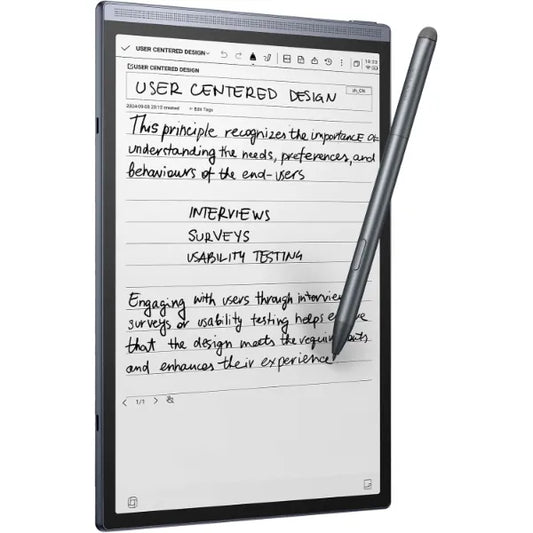 USER CENTERED DESIGN
10:23
USER CENTERED DESIGN
USER CENTERED DESIGN
zh_CN
created
Edit Tags
This principle recognizes the importance
understanding the needs, preferences, and
behaviours of the end-users
INTERVIEWS
SURVEYS
USABILITY TESTING
Engaging with users through
surveys or usability testing helps
that the design meets the
and enhances their experience
1/1